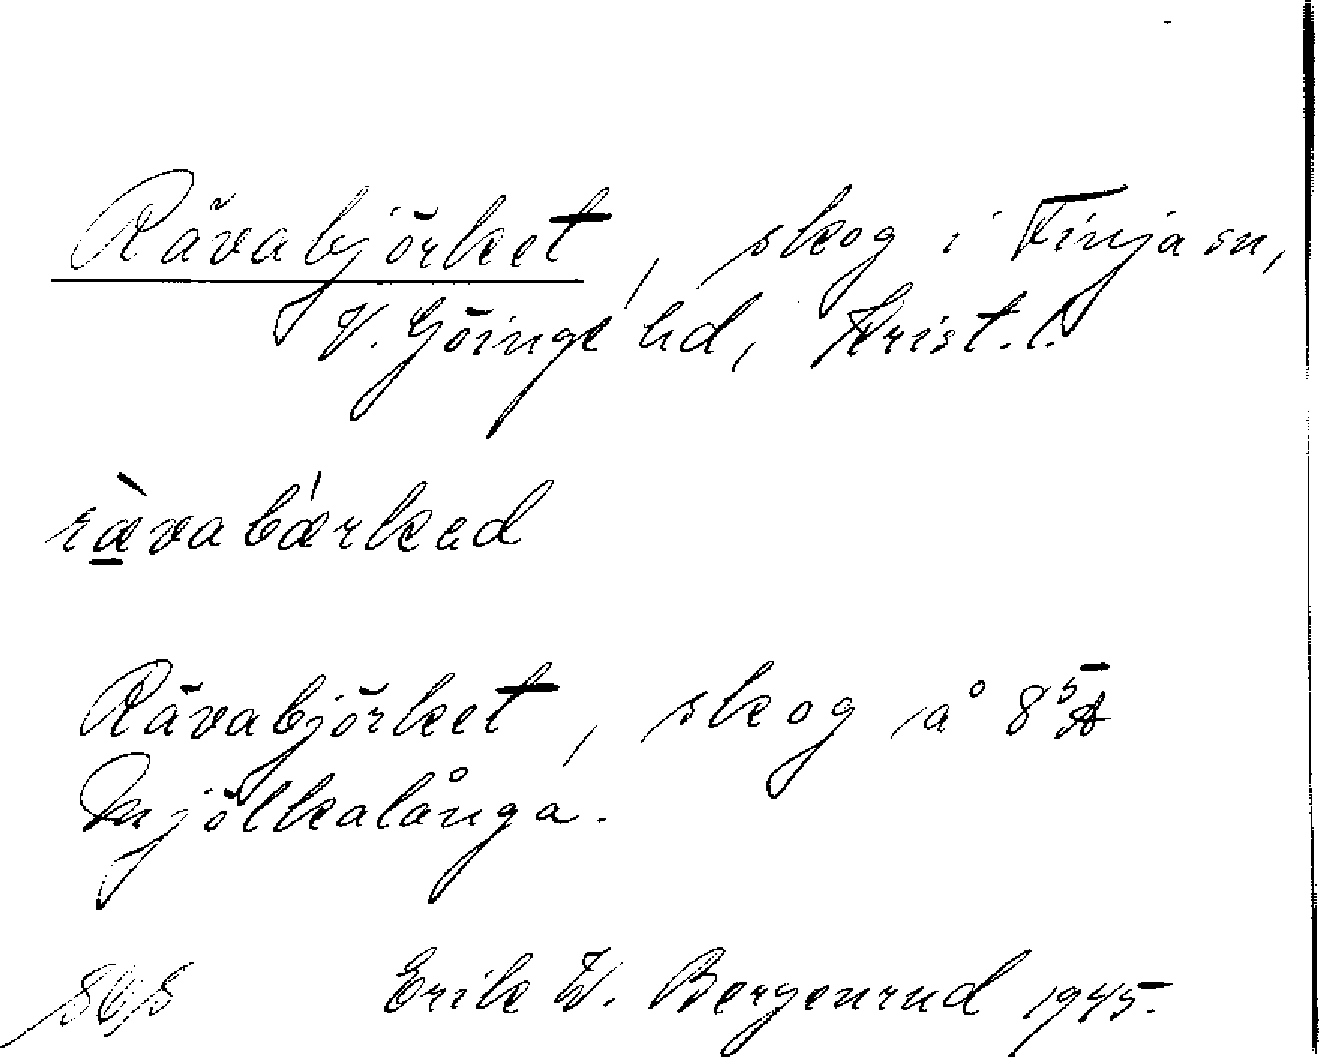 Rävabjörket, skog i Finja sn,
V. Göinge hd, Krist. l.
rævabærkad
Rävabjörket, skog å 8⁵A
Mjölkalånga.
Erik W. Bergenrud 1945.